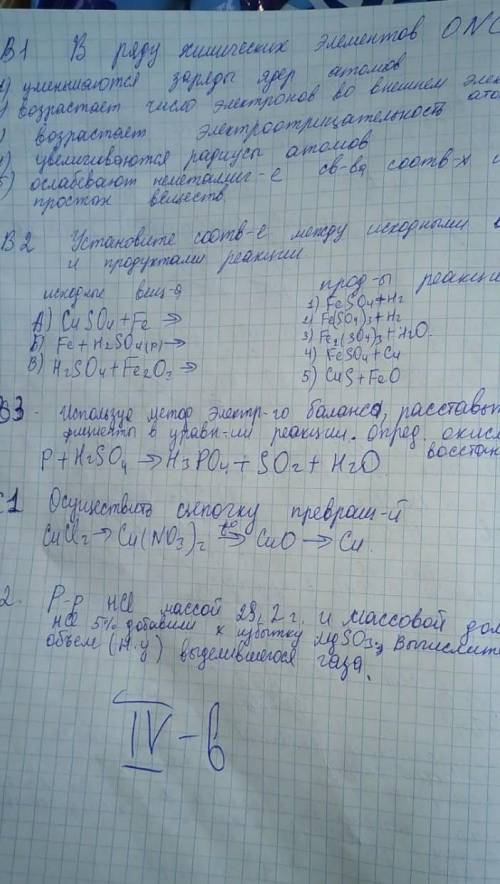 В1 В ряду химических элементов ONC
1) уменьшаются заряды ядер атомов
2) возрастает число электронов во внешнем
3) возрастает электроотрицательность
4) увеличиваются радиусы атомов
5) ослабевают неметаллич-е св-ва соотв-х
простых веществ
В2 Установите соотв-е между исходными
и продуктами реакции
исходные вещ-а прод-ы реакции
А) CuSO4 + Fe →
Б) Fe + H2SO4(р) →
В) H2SO4 + Fe2O3 →
1) FeSO4 + H2
2) Fe(SO4)3 + H2
3) Fe2(SO4)3 + H2O
4) FeSO4 + Cu
5) CuS + FeO
В3 - Используя метод электр-го баланса, расставьт
фициенты в уравн-ии реакции. Опред. окисл
P + H2SO4 → H3PO4 + SO2 + H2O восстан
С1 Осуществить цепочку превращ-й
CuCl2 → Cu(NO3)2 t° → CuO → Cu
2. Р-р HCl массой 29,2 г. и массовой дол
HCl 5% добавили к избытку MgSO3, Вычислите
объем (Н.у) выделившегося газа.
IV - в